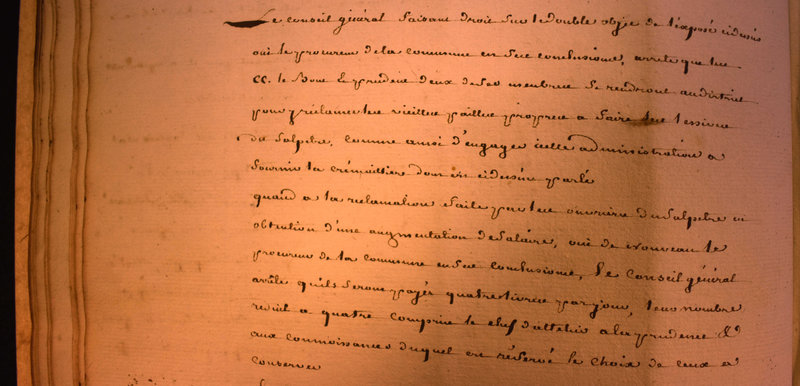 Le conseil général faisant droit sur le double objet de l'exposé cidessus
oui le procureur de la commune en ses conclusions, arrete que les
CC. le Bouc & prudent deux de ses membres se rendront au district
pour réclamer les vieilles pailles propres a faire les lessives
du Salpetre, comme aussi d'engager icelle administration a
fournir la crémaillere dont est cidessus parlé
quand a la reclamation faite par les ouvriers du Salpetre en
obtention d'une augmentation de salaire, oui de nouveau le
procureur de la commune en ses conclusions, le Conseil général
arrête qu'ils seront payés quatre livres par jour, leur nombre
reduit a quatre compris le chef d'attelier a la prudence &
aux connoissances duquel est réservé le choix de ceux a
conserver